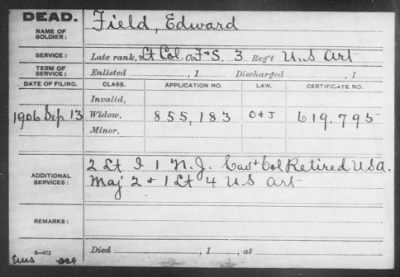 DEAD.
NAME OF SOLDIER:
Field, Edward
SERVICE:
Late rank, Lt Col. Co. F+S. 3 Reg't U.S. Art
TERM OF SERVICE:
Enlisted , 1 Discharged , 1
DATE OF FILING. CLASS. APPLICATION NO. LAW. CERTIFICATE NO.
Invalid,
1906 Sep. 13 Widow, 855,183 O & J 619.795
Minor,
ADDITIONAL SERVICES:
2 Lt I 1 N.J. Cav + Col Retired U.S.A.
Maj 2 + 1 Lt 4 U S Art
REMARKS:
Died , 1 , at